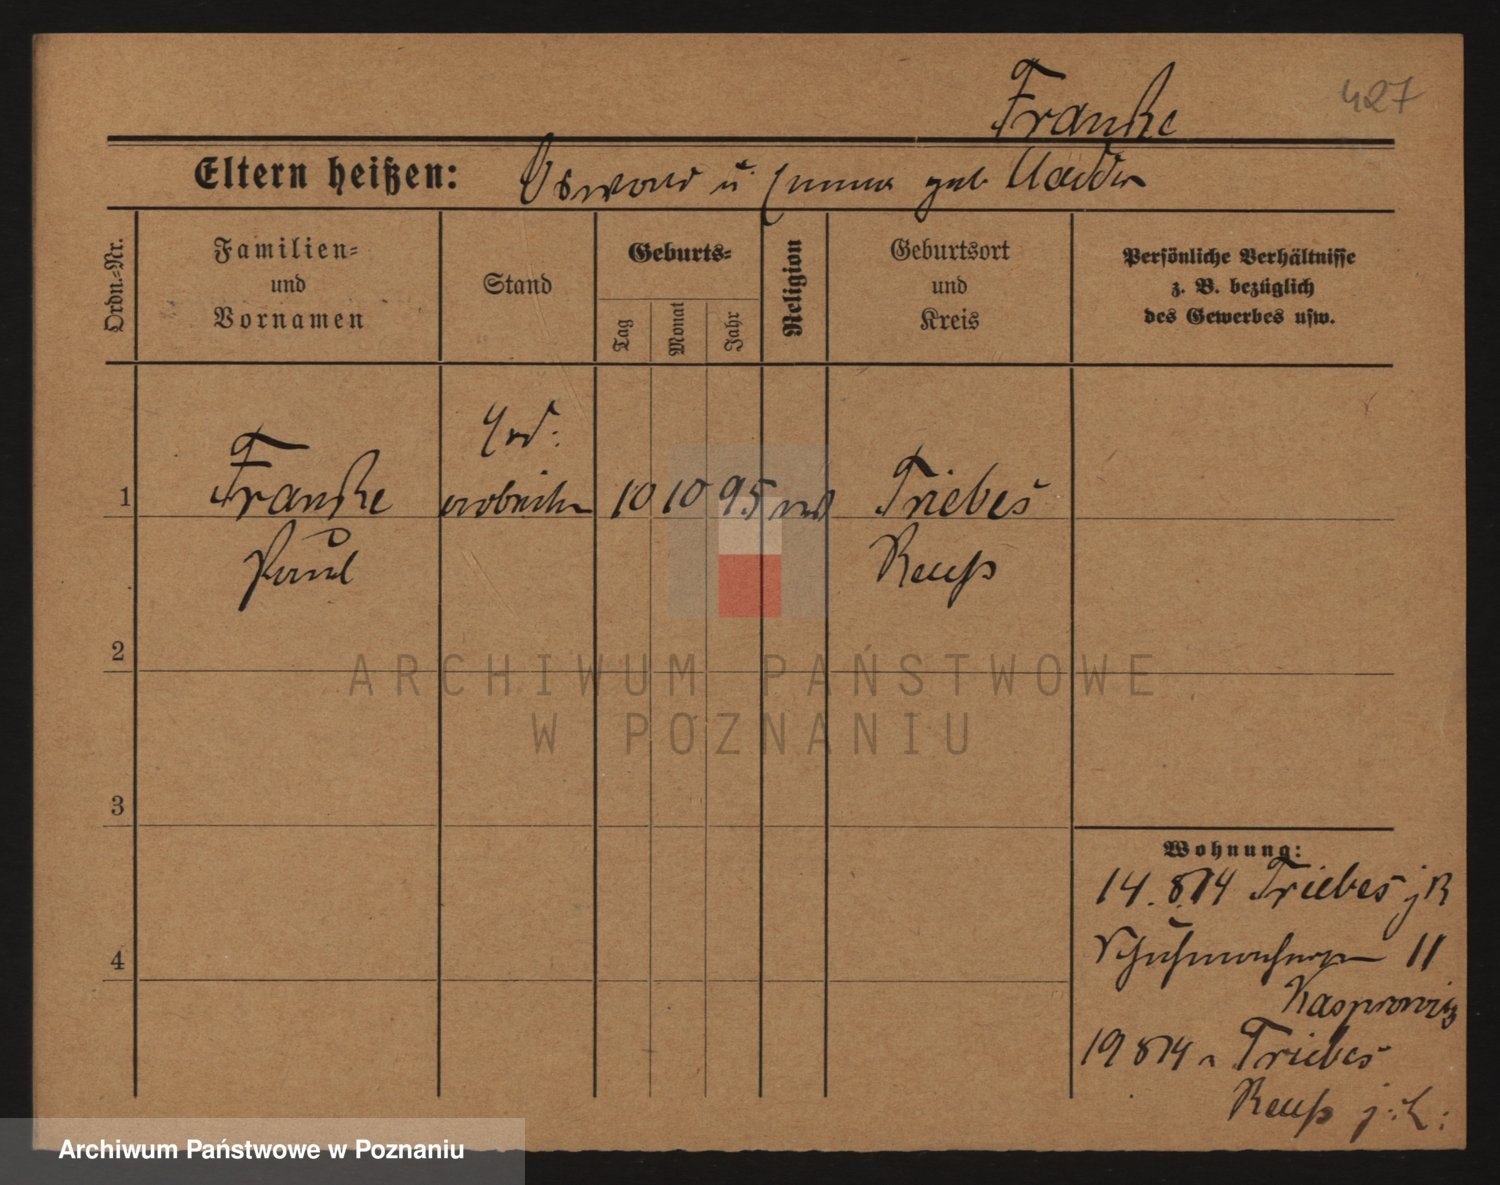 427
Franke
Eltern heißen: Oswald u. Emma geb.
Ordn.-Nr.
Familien-
und
Vornamen
Stand
Geburts-
Tag
Monat
Jahr
Religion
Geburtsort
und
Kreis
Persönliche Verhältnisse
z. B. bezüglich
des Gewerbes usw.
1
Franke
Paul
Erd.
arbeiter
10 10 95
Triebes
Reuß
2
3
4
Wohnung:
14. 8 14 Triebes j R
11
Kasprowicz
19 8 14 n Triebes
Reuß j. L.
ARCHIWUM PAŃSTWOWE
W POZNANIU
Archiwum Państwowe w Poznaniu